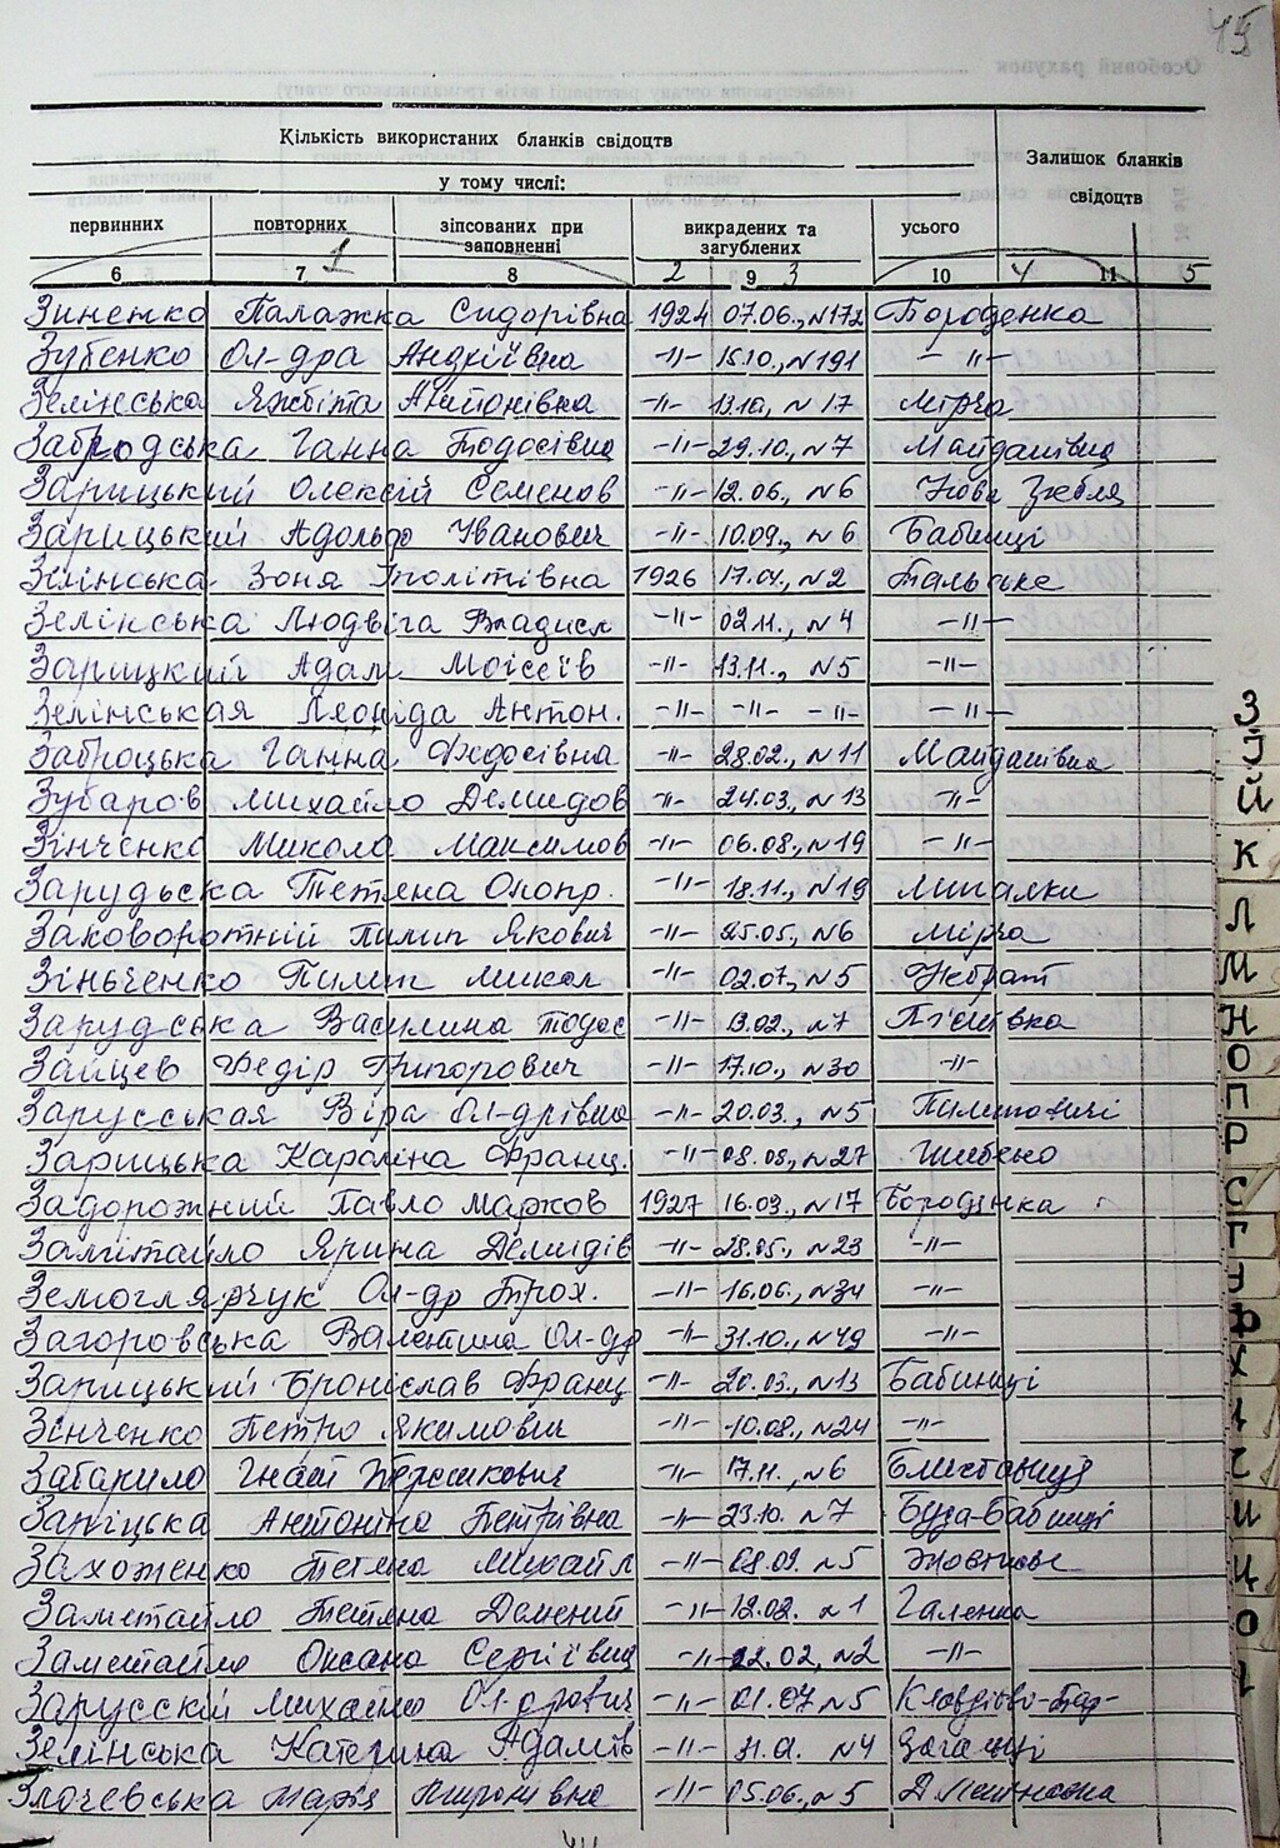 45
Кількість використаних бланків свідоцтв
Залишок бланків свідоцтв
у тому числі:
первинних повторних зіпсованих при заповненні викрадених та загублених усього
1 2 3 4 5
6 7 8 9 10 11
Зиненко Палажка Сидорівна 1924 07.06., №172 Бороденка
Зубенко Ол-дра Андріївна -"- 15.10., №191 -"-
Зелінська Яжбіта Антонівна -"- 13.10, №17 Мірча
Забродська Ганна Тодосівна -"- 29.10, №7 Майданівка
Зарицький Олексій Семенов -"- 12.06., №6 Нова Гребля
Зарицький Адольф Іванович -"- 10.09., №6 Бабинці
Зелінська Зоня Іполітівна 1926 17.01., №2 Тальське
Зелінська Людвіга Владисл -"- 02.11., №4 -"-
Зарицкий Адам Моісеїв -"- 13.11., №5 -"-
Зелінськая Леоніда Антон. -"- -"- -"- -"-
Заброцька Ганна Федосівна -"- 28.02., №11 Майданівка
Зубаров Михайло Демидов -"- 24.03., №13 -"-
Зінченко Микола Максимов -"- 06.08., №19 -"-
Зарудьска Тетяна Онопр. -"- 18.11., №19 Мигалки
Заковоротній Пилип Якович -"- 25.05., №6 Мірча
Зіньченко Пилип Микол -"- 02.07., №5 Небрат
Зарудська Василина Тодос -"- 13.02., №7 П'ісківка
Зайцев Федір Григорович -"- 17.10., №30 -"-
Зарусськая Віра Ол-дрівна -"- 20.03., №5 Пилиповичі
Зарицька Кароліна Франц. -"- 08.08., №27 Шибено
Задорожний Павло Марков 1927 16.03., №17 Бородянка
Замітайло Ярина Демидів -"- 28.05., №23 -"-
Земоглярчук Ол-др Трох. -"- 16.06., №34 -"-
Загоровська Валентина Ол-др -"- 31.10., №49 -"-
Зарицький Броніслав Франц -"- 20.03., №13 Бабинці
Зінченко Петро Якимович -"- 10.08., №24 -"-
Забарило Гнат -"- 17.11., №6 Блиставиця
Заріцька Антоніна Петрівна -"- 23.10. №7 Буда-Бабинці
Захоженко Тетяна Михайл -"- 08.09. №5
Заметайло Тетяна -"- 12.02. №1 Галенка
Заметайло Оксана Сергіївна -"- 22.02, №2 -"-
Зарусскій Михайло Ол-дрович -"- 01.07 №5 Клавдієво-Тар-
Зелінська Катерина Адамів -"- №4 Загальці
Злочевська Марія Миронівна -"- 05.06., №5
З
І
Й
К
Л
М
Н
О
П
Р
С
Т
У
Ф
Х